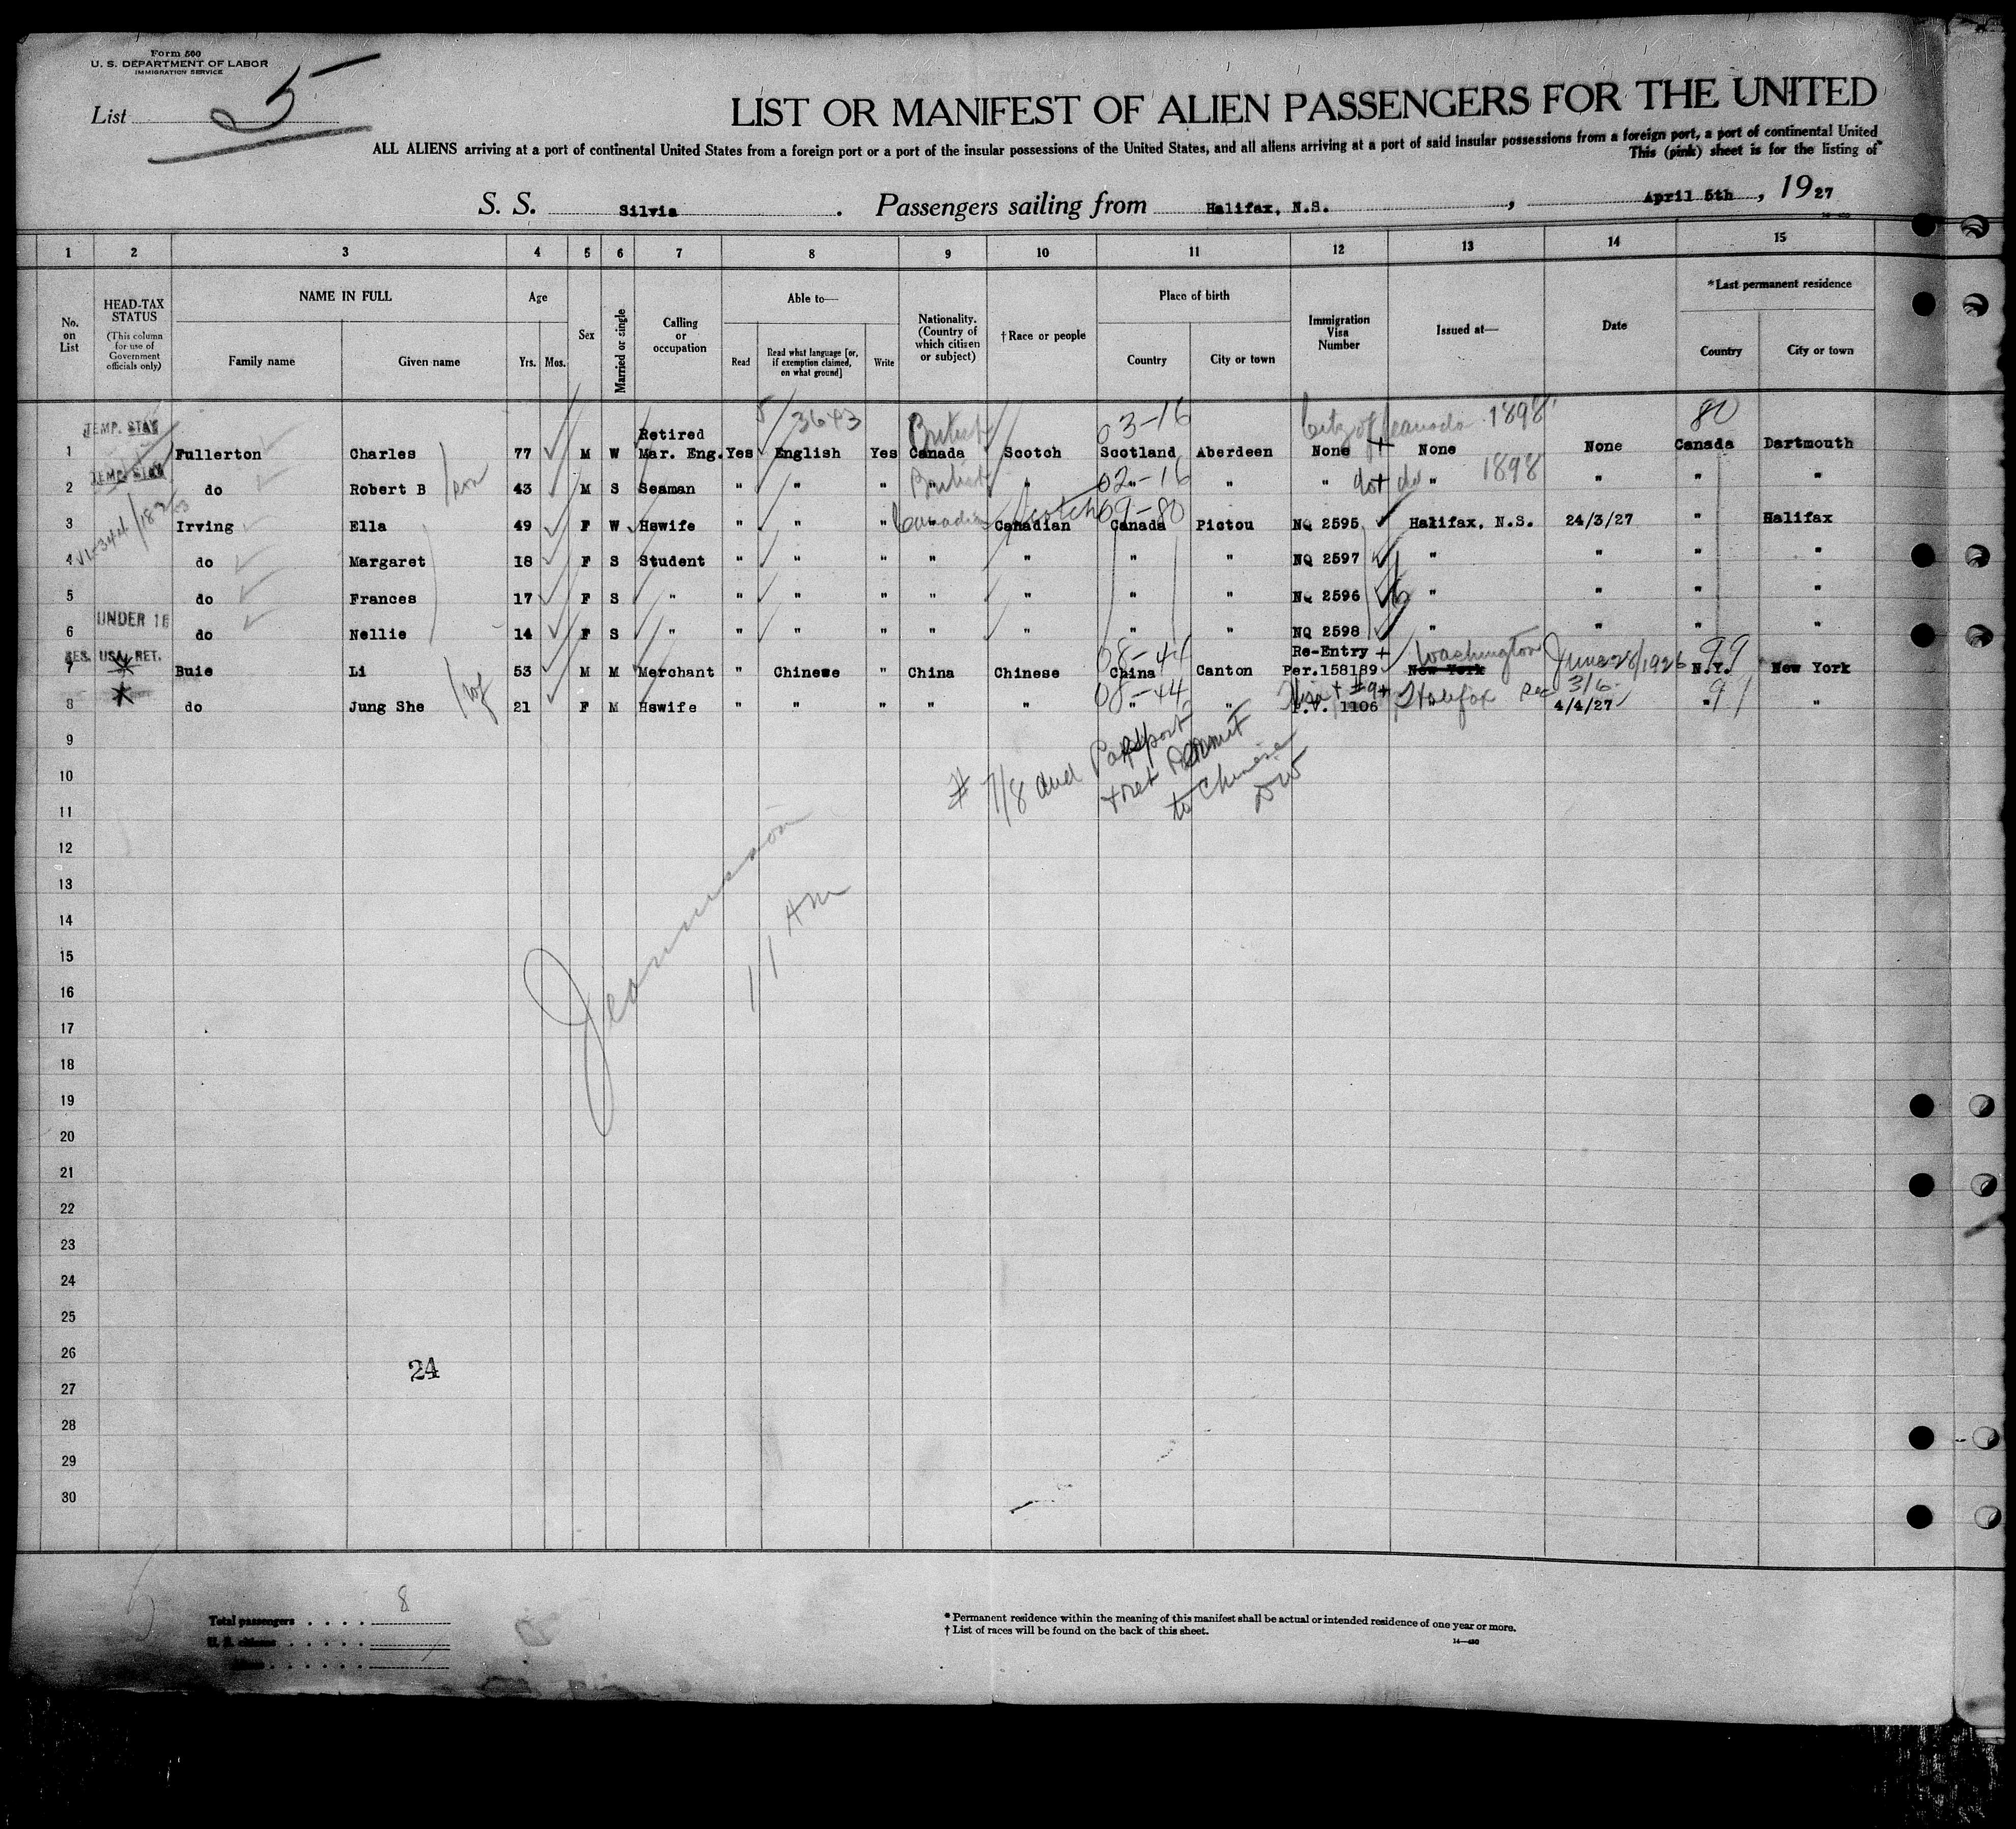 Form 500
U. S. DEPARTMENT OF LABOR
IMMIGRATION SERVICE
List 5
LIST OR MANIFEST OF ALIEN PASSENGERS FOR THE UNITED
ALL ALIENS arriving at a port of continental United States from a foreign port or a port of the insular possessions of the United States, and all aliens arriving at a port of said insular possessions from a foreign port, a port of continental United
This (pink) sheet is for the listing of
S. S. Silvia. Passengers sailing from Halifax, N.S., April 5th, 1927
1 2 3 4 5 6 7 8 9 10 11 12 13 14 15
No. on List
HEAD-TAX STATUS (This column for use of Government officials only)
NAME IN FULL
Family name
Given name
Age
Yrs. Mos.
Sex
Married or single
Calling or occupation
Able to—
Read
Read what language [or, if exemption claimed, on what ground]
Write
Nationality. (Country of which citizen or subject)
†Race or people
Place of birth
Country
City or town
Immigration Visa Number
Issued at—
Date
*Last permanent residence
Country
City or town
3643 British 03-16 1898 80
TEMP. STAY
1 Fullerton Charles 77 M W Retired Mar. Eng. Yes English Yes Canada Scotch Scotland Aberdeen None None None Canada Dartmouth
TEMP. STAY
British 02-16 do 1898
2 do Robert B son 43 M S Seaman " " " " " " " " " " " "
Canadian Scotch 09-80
3 Irving Ella 49 F W Hswife " " " " Canadian Canada Pictou NQ 2595 Halifax, N.S. 24/3/27 " Halifax
4 do Margaret 18 F S Student " " " " " " " NQ 2597 " " " "
5 do Frances 17 F S " " " " " " " " NQ 2596 " " " "
UNDER 16
6 do Nellie 14 F S " " " " " " " " NQ 2598 " " " "
RES. USA. RET.
08-44 Re-Entry Washington June 28/1926 99
7 Buie Li 53 M M Merchant " Chinese " China Chinese China Canton Per.158189 New York N.Y. New York
08-44 Visa Halifax 3/6 99
8 do Jung She wf 21 F M Hswife " " " " " " " P.V. 1106 4/4/27 " "
# 7/8 and Passport
+ ret permit
to Chinese
Div
9
10
11
12
13
14
15
16
17
18
19
20
21
22
23
24
25
26
27
28
29
30
11 AM
24
Total passengers 8
U. S. citizens
*Permanent residence within the meaning of this manifest shall be actual or intended residence of one year or more.
†List of races will be found on the back of this sheet.
14—430